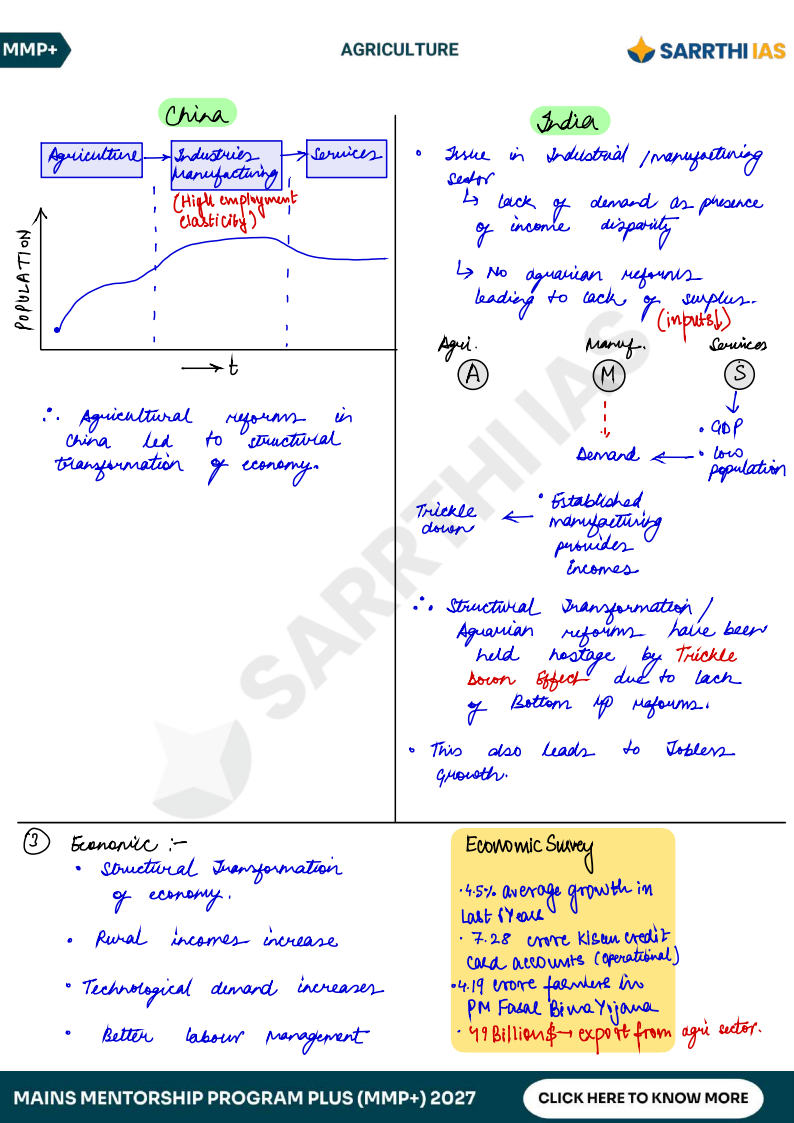 MMP+
AGRICULTURE
SARRTHI IAS
China
Agriculture → Industries → Services
Manufacturing
(High employment
elasticity)
POPULATION
→ t
∴ Agricultural reforms in
China led to structural
transformation of economy.
India
• Issue in Industrial / manufacturing
sector
↳ lack of demand as presence
of income disparity
↳ No agrarian reforms
leading to lack of surplus.
(inputs↓)
Agri. Manuf. Services
A M S
• GDP
Demand ← • low
population
Trickle ← • Established
down manufacturing
provides
incomes
∴ Structural Transformation /
Agrarian reforms have been
held hostage by Trickle
Down Effect due to lack
of Bottom up reforms.
• This also leads to Jobless
Growth.
③ Economic :-
• Structural Transformation
of economy.
• Rural incomes increase
• Technological demand increases
• Better labour management
Economic Survey
• 4.5% average growth in
last
• 7.28 crore Kisan credit
card accounts (operational)
• 4.19 crore farmers in
PM Fasal Bima Yojana
• 49 Billion $ → export from agri sector.
SARRTHI IAS
MAINS MENTORSHIP PROGRAM PLUS (MMP+) 2027
CLICK HERE TO KNOW MORE